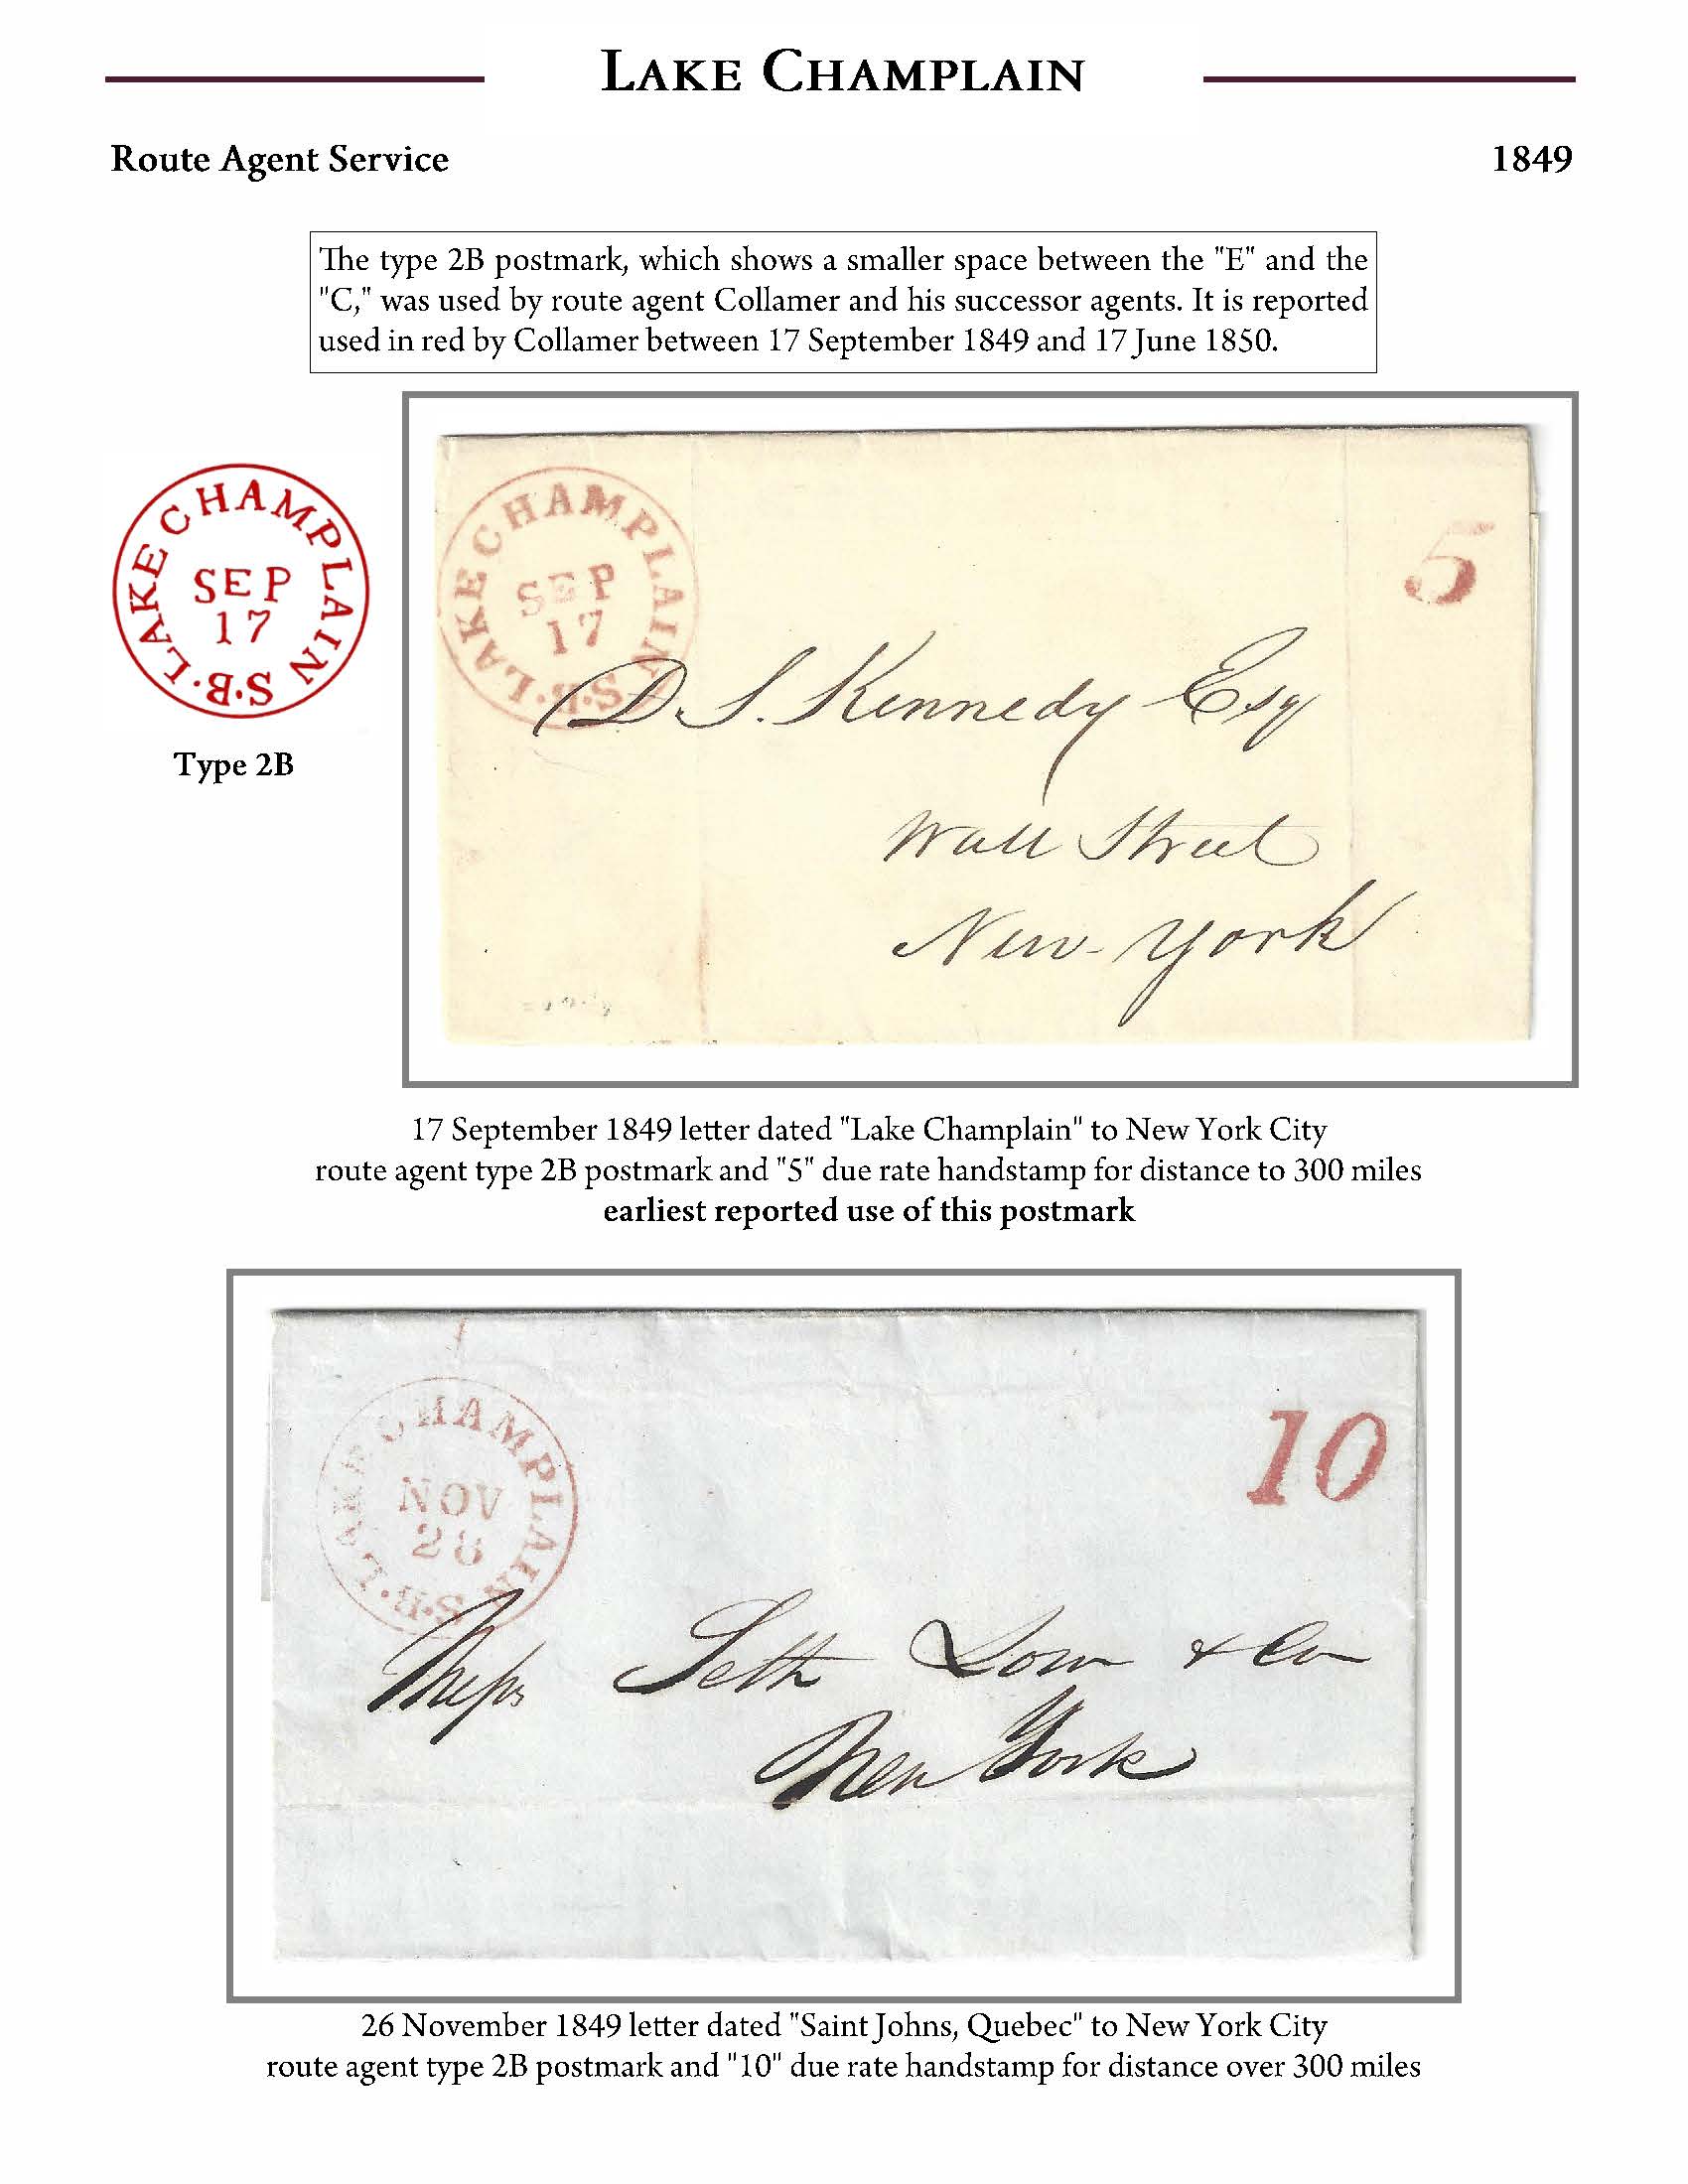 LAKE CHAMPLAIN
Route Agent Service 1849
The type 2B postmark, which shows a smaller space between the "E" and the
"C," was used by route agent Collamer and his successor agents. It is reported
used in red by Collamer between 17 September 1849 and 17 June 1850.
LAKE CHAMPLAIN S.B.
SEP
17
Type 2B
LAKE CHAMPLAIN S.B.
SEP
17
5
D. S. Kennedy Esq
Wall Street
New-York
17 September 1849 letter dated "Lake Champlain" to New York City
route agent type 2B postmark and "5" due rate handstamp for distance to 300 miles
earliest reported use of this postmark
LAKE CHAMPLAIN S.B.
NOV
28
10
Messrs Seth Low & Co
New York
26 November 1849 letter dated "Saint Johns, Quebec" to New York City
route agent type 2B postmark and "10" due rate handstamp for distance over 300 miles